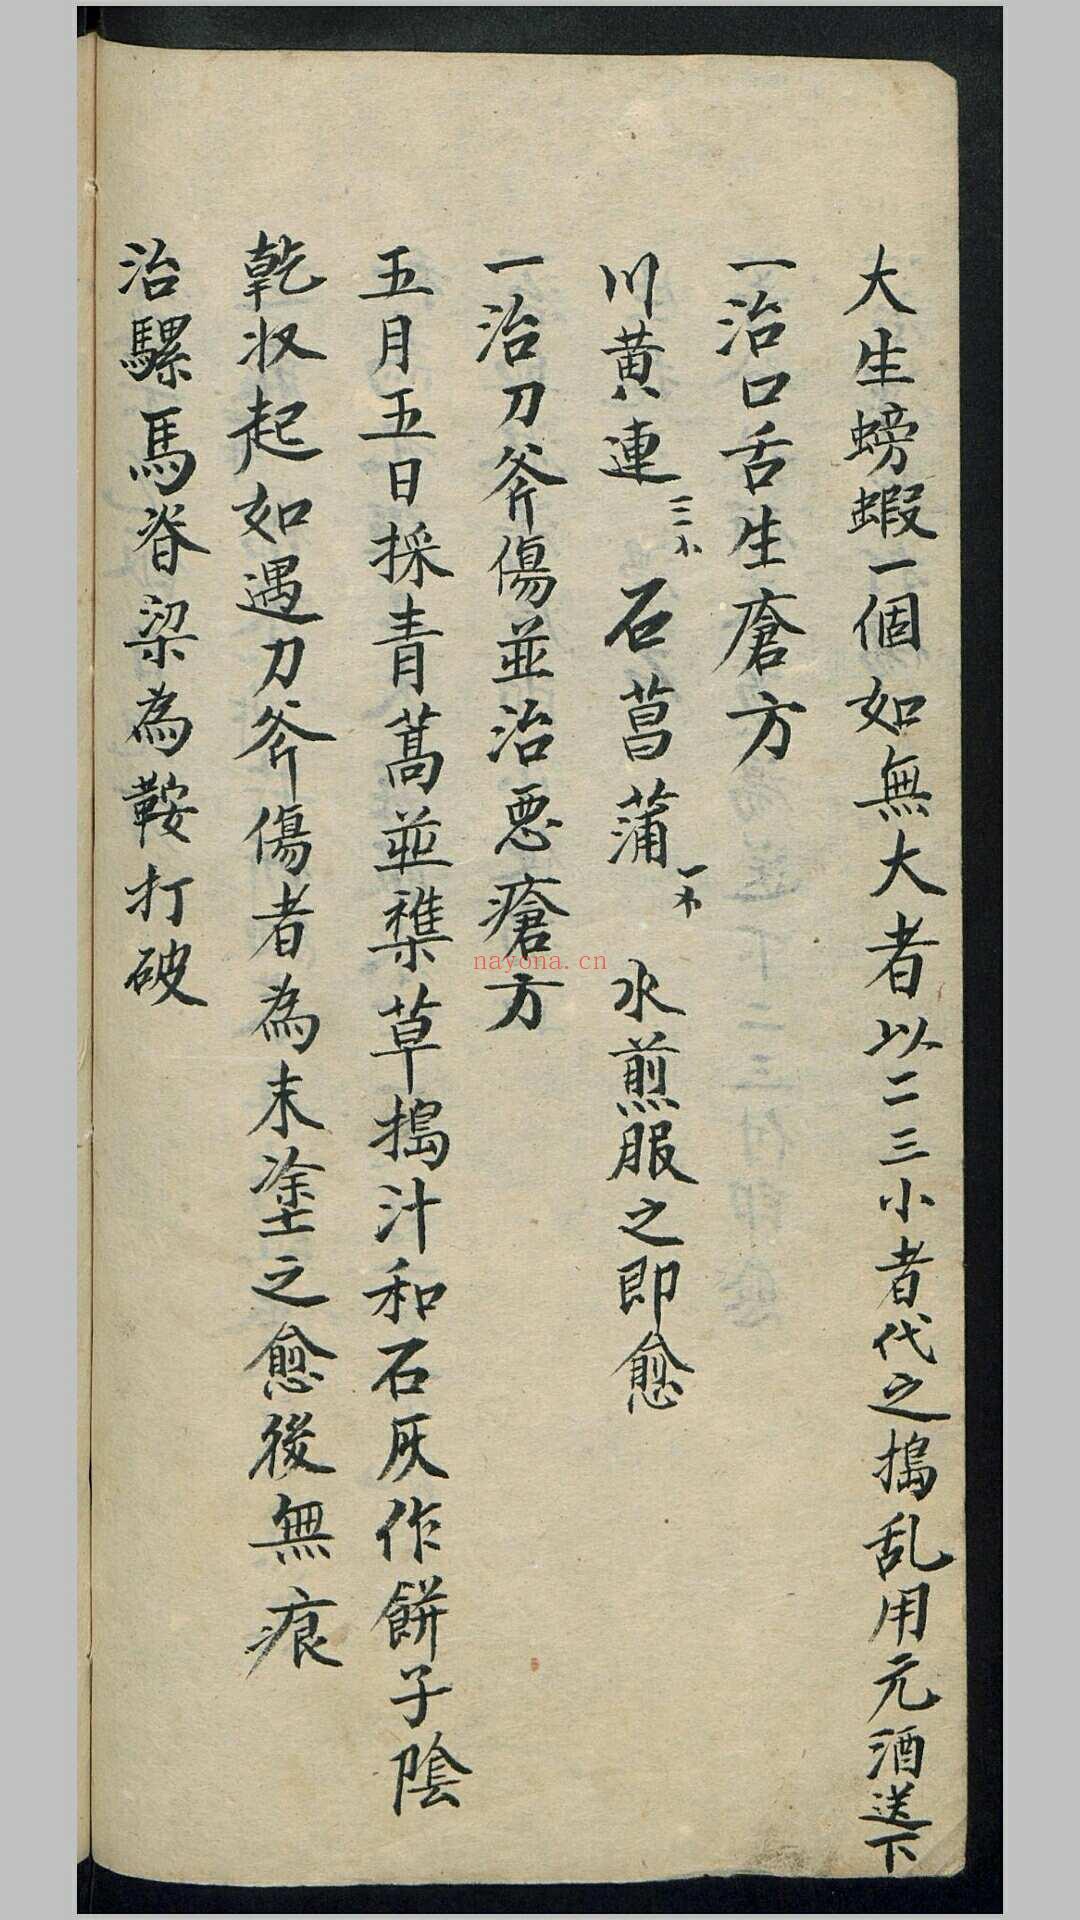 大生螃蝦一個如無大者以二三小者代之搗乱用元酒送下
一治口舌生瘡方
川黄連 石菖蒲 水煎服之即愈
一治刀斧傷並治恶瘡方
五月五日採青蒿並䅵草搗汁和石灰作餅子陰
乾収起如遇刀斧傷者為末塗之愈後無痕
治騾馬脊梁為鞍打破
nayona.cn